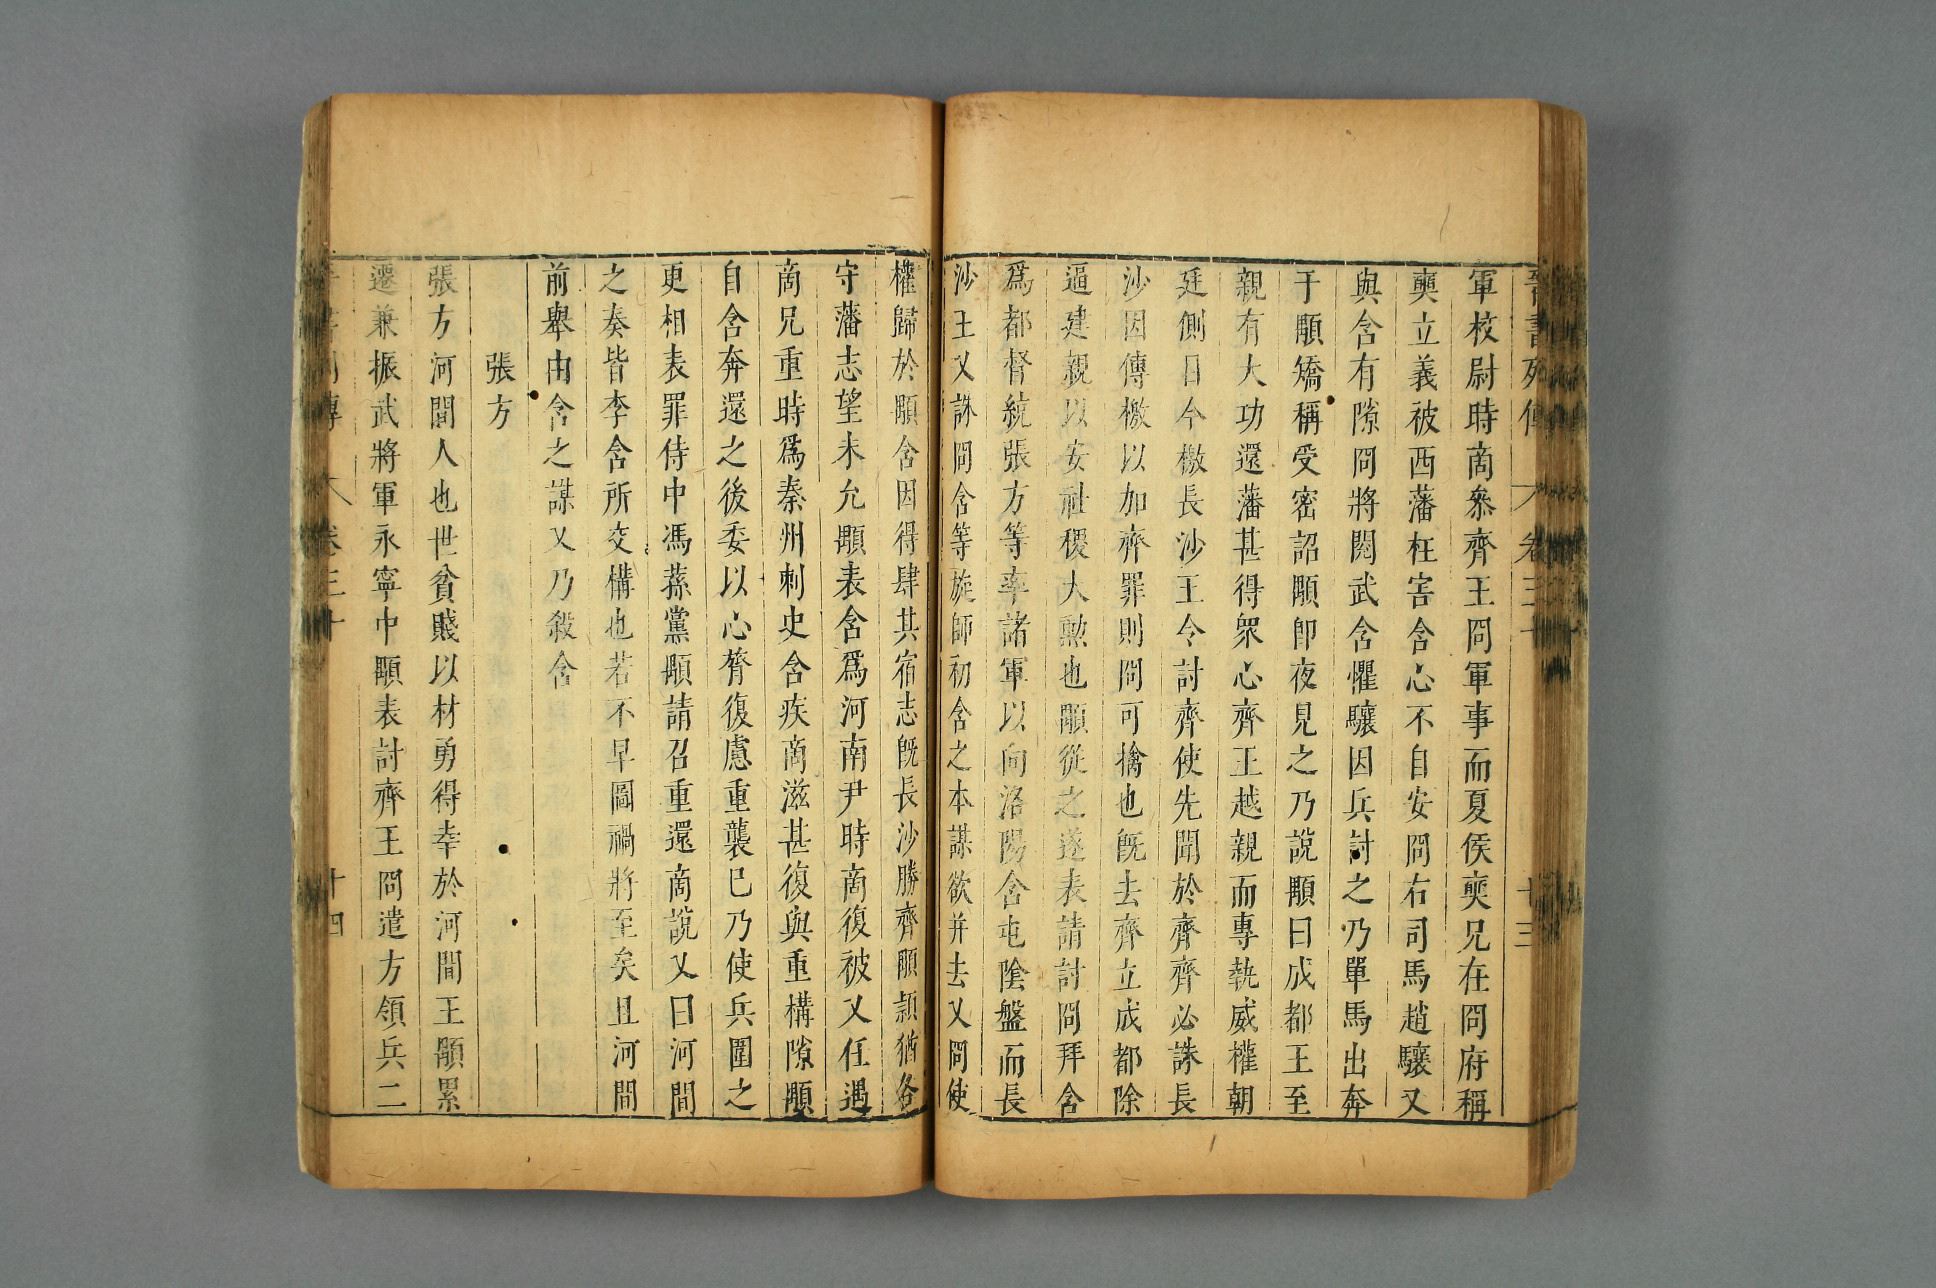 晉書列傳 卷三十 十三
軍校尉時商參齊王冏軍事而夏侯奭兄在冏府稱
奭立義被西藩枉害含心不自安冏右司馬趙驤又
與含有隙冏將閱武含懼驤因兵討之乃單馬出奔
于顒矯稱受密詔顒即夜見之乃說顒曰成都王至
親有大功還藩甚得衆心齊王越親而專執威權朝
廷側目今檄長沙王令討齊使先聞於齊齊必誅長
沙因傳檄以加齊罪則冏可擒也旣去齊立成都除
逼建親以安社稷大勲也顒從之遂表請討冏拜含
爲都督統張方等率諸軍以向洛陽含屯陰盤而長
沙王乂誅冏含等旋師初含之本謀欲并去乂冏使
權歸於顒含因得肆其宿志旣長沙勝齊顒頴猶各
守藩志望未允顒表含爲河南尹時商復被乂任遇
商兄重時爲秦州刺史含疾商滋甚復與重構隙顒
自含奔還之後委以心膂復慮重襲已乃使兵圍之
更相表罪侍中馮蓀黨顒請召重還商說乂曰河間
之奏皆李含所交構也若不早圖禍將至矣且河間
前舉由含之謀乂乃殺含
張方
張方河間人也世貧賤以材勇得幸於河間王顒累
遷兼振武將軍永寧中顒表討齊王冏遣方領兵二
傳 卷三十 十四